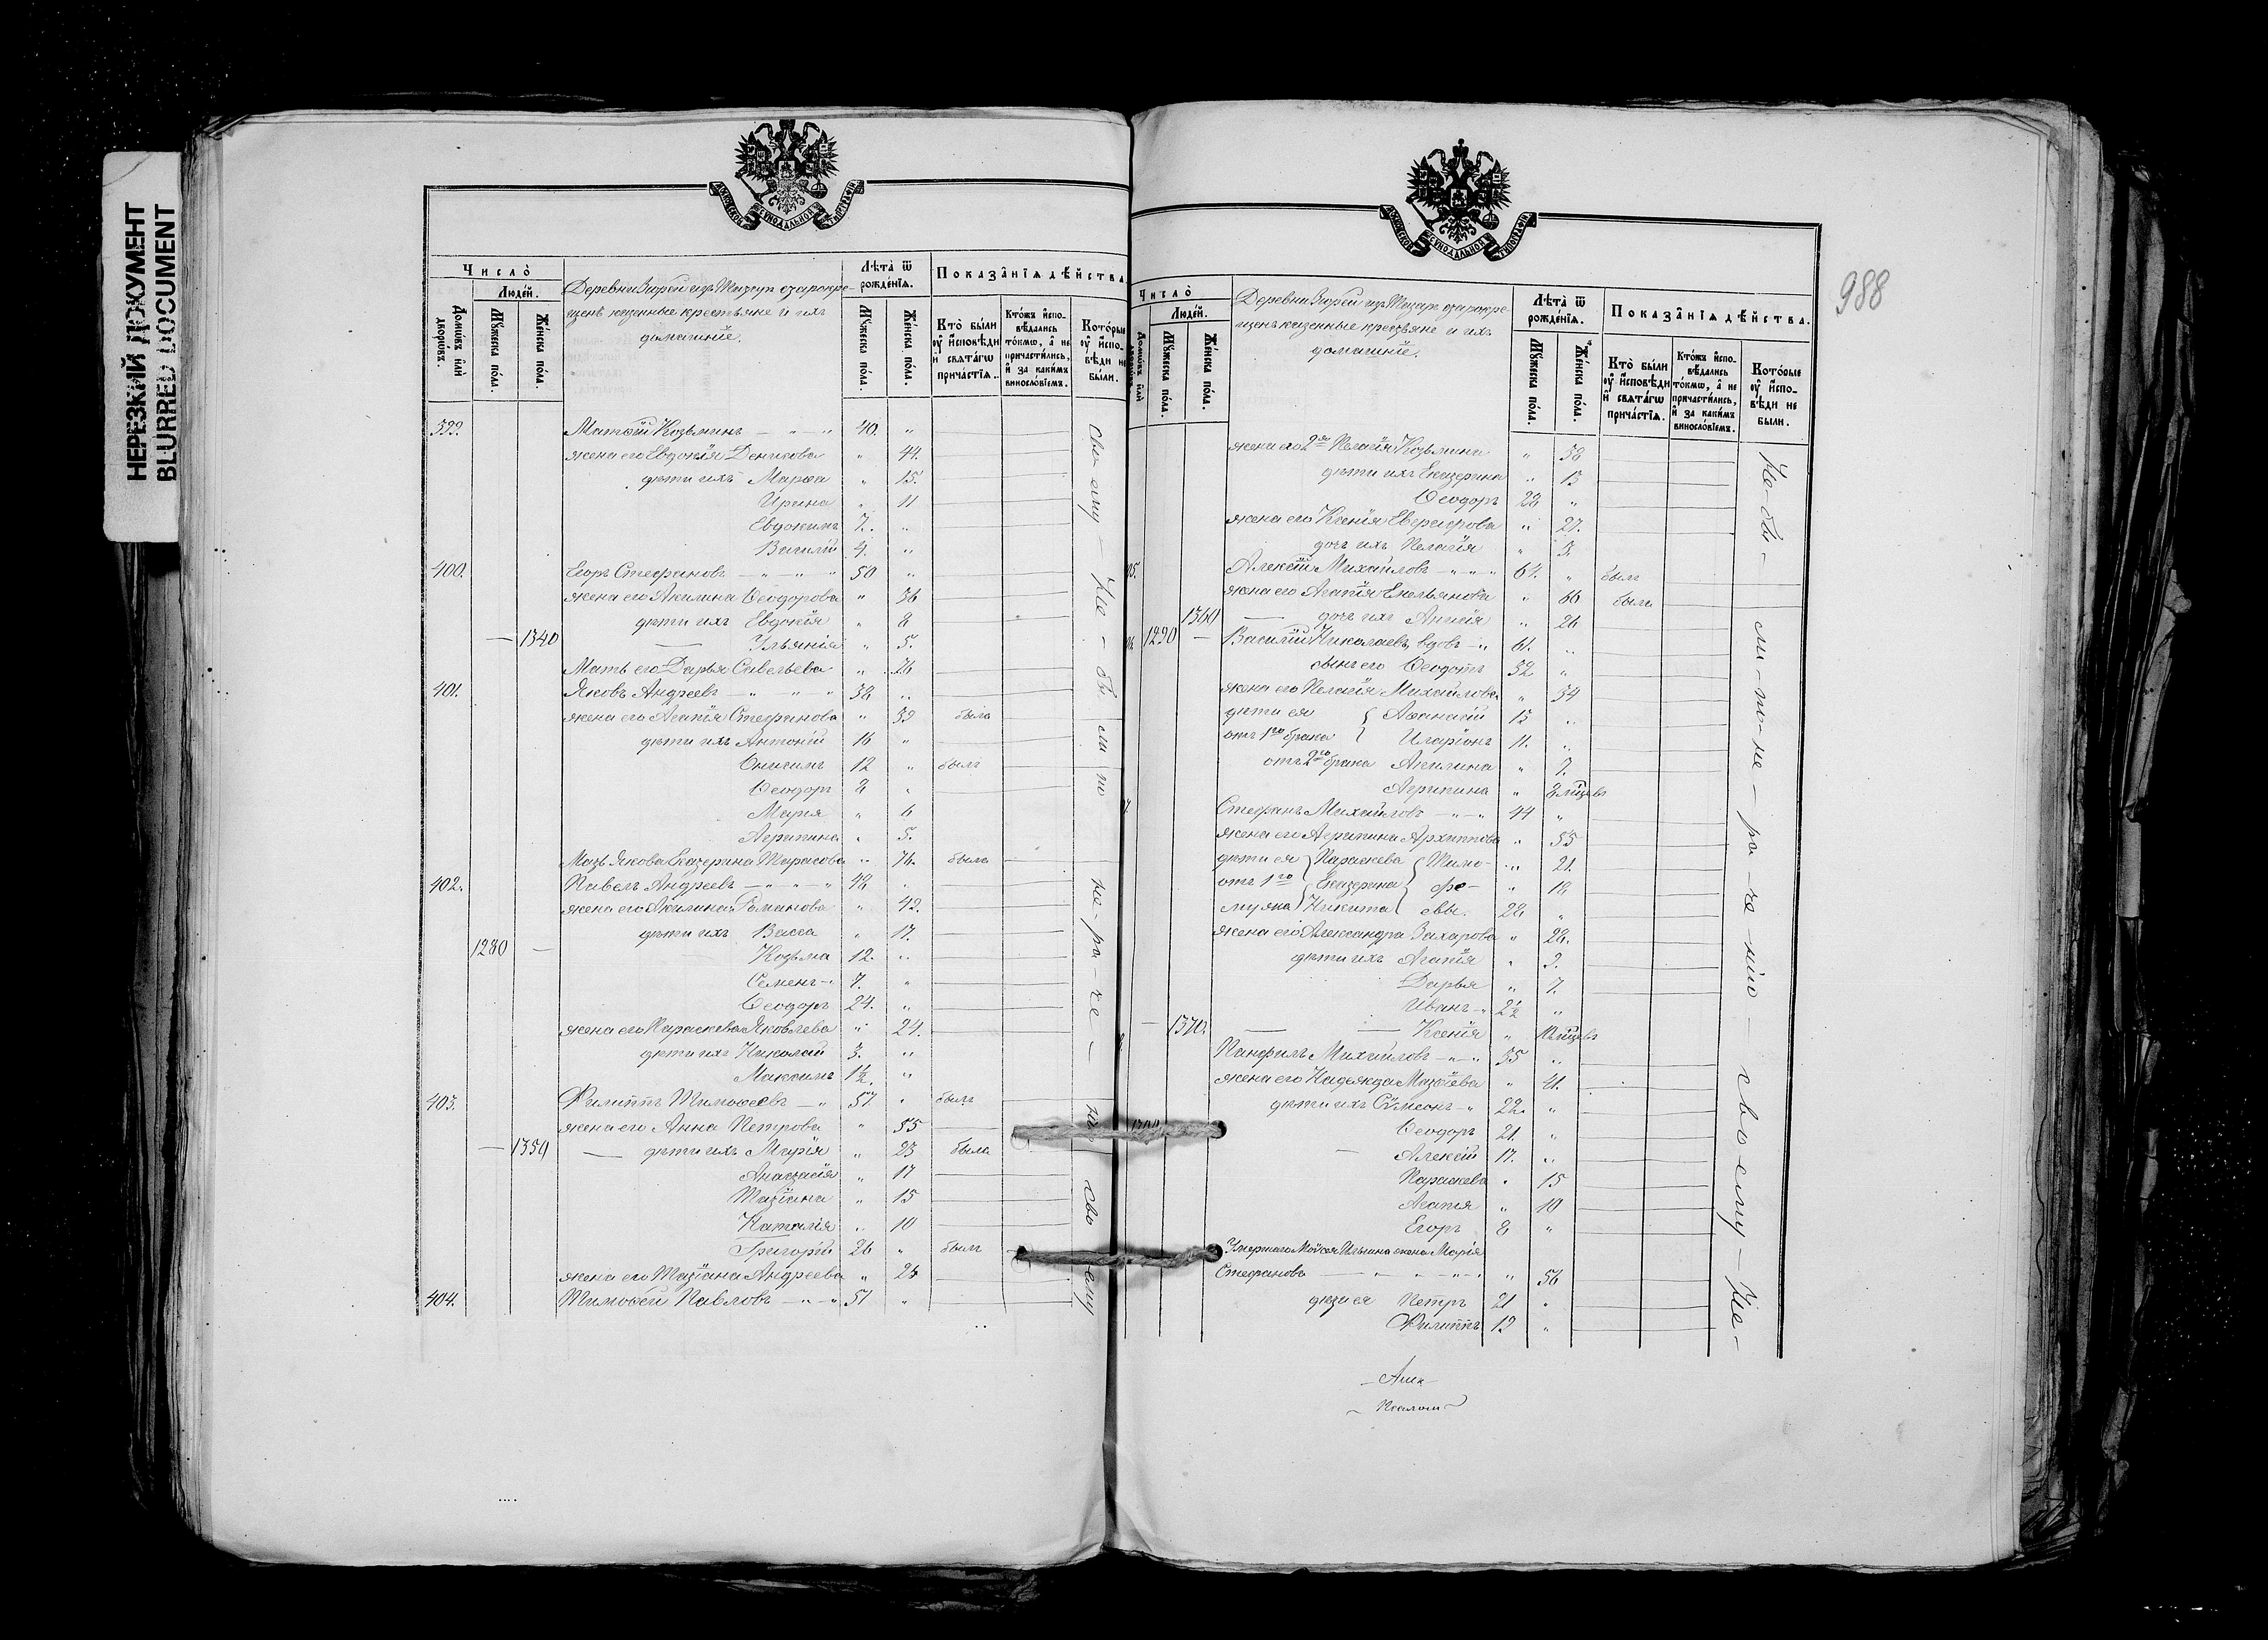 НЕРЕЗКИЙ ДОКУМЕНТ
BLURRED DOCUMENT
МОСКОВСКОЙ СѴНОДАЛЬНОЙ ТИПОГРАФІИ
Число̀
Людей.
Домѡвъ илѝ дворѡвъ.
Мꙋжеска пола.
Женска пола.
Деревни Зюрей изъ Татаръ старокре-
щены казенные крестьяне и ихъ
домашніе.
Лѣта̀ ѿ рожденїѧ.
Мꙋжеска пола.
Женска пола.
Показанїѧ дѣйства
Кто̀ были оу҆ и҆сповѣди и҆ свѧтагѡ причастїѧ.
Ктожъ и҆спо-
вѣдались
токмѡ, а҆ не
причастились,
и҆ за какимъ
винословїемъ.
Которые
оу҆ и҆спо-
вѣди не
были.
399. Матѳій Козьминъ — " — " 40. "
жена его Евдокія Денисова " 44.
дѣти ихъ Марѳа " 15.
Ирина " 11
Евдокимъ 7. "
Василій 4. "
400. Егоръ Стефановъ — " — " — " 50 "
жена его Акилина Ѳеодорова " 36
дѣти ихъ Евдокія " 8
— 1340 — Ульянія " 5.
Мать его Дарья Савельева " 76
401. Яковъ Андреевъ — " — " — " 38 "
жена его Агапія Стефанова " 39 была
дѣти ихъ Антоній 16 "
Онисимъ 12 " былъ
Ѳеодоръ 8 "
Марія " 6
Агрипина " 5.
Мать Якова Екатерина Тарасова " 76. была
402. Павелъ Андреевъ — " — " — " 48 "
жена его Акилина Романова " 42.
дѣти ихъ Васса " 17.
1280 — Козьма 12. "
Семенъ — " 7. "
Ѳеодоръ 24. "
жена его Параскева Яковлева " 24.
дѣти ихъ Николай 3. "
Максимъ 1½. "
403. Филиппъ Тимоѳеевъ — " 57 " былъ
жена его Анна Петрова " 55
— 1350 — дѣти ихъ Марія " 23 была
Анастасія " 17
Татіана " 15
Наталія " 10
Григорій 26 " былъ
жена его Татіана Андреева " 26
404. Тимоѳей Павловъ — " — " 51 "
сво-ему — Не-бы ли по не-ра-че- нію сво ему
988
Число̀
Людей.
Мꙋжеска пола.
Женска пола.
Деревни Зюрей изъ Татаръ старокре-
щены казенные крестьяне и ихъ
домашніе.
Лѣта̀ ѿ рожденїѧ.
Мꙋжеска пола.
Женска пола.
Показанїѧ дѣйства.
Кто̀ были оу҆ и҆сповѣди и҆ свѧтагѡ причастїѧ.
Ктожъ и҆спо-
вѣдались
токмѡ, а҆ не
причастились,
и҆ за какимъ
винословїемъ.
Которые
оу҆ и҆спо-
вѣди не
были.
жена его 2я Пелагія Козьмина " 38
дѣти ихъ Екатерина " 13
Ѳеодоръ 28 "
жена его Ксенія Евграфова " 27.
дочь ихъ Пелагія " 3.
Алексій Михайловъ — " " " 64. " былъ
жена его Агапія Емельянова " 66 была
1360 — дочь ихъ Анисія " 26
1290 — Василій Николаевъ, вдовъ — " 61. "
сынъ его Ѳеодотъ 32 "
жена его Пелагія Михайлова " 34
дѣти ея { Аѳанасій 13 "
отъ 1го брака } Иларіонъ 11. "
отъ 2го брака Акилина " 7.
Агрипина " 8 мѣсцевъ
Стефанъ Михайловъ — " — " 44 "
жена его Агрипина Архиппова " 55
дѣти ея } Параскева { Тимо- " 21.
отъ 1го } Екатерина } фе- " 18
мужа } Никита { евы. 28 "
жена его Александра Захарова " 28.
дѣти ихъ Агапія " 9.
Дарья " 7.
Иванъ — " 2½ "
— 1370. — Ксенія " мѣсцевъ
Панфилъ Михайловъ — " — " 35 "
жена его Надежда Матѳіева " 41.
дѣти ихъ Сѵмеонъ — " 22. "
Ѳеодоръ 21. "
— Алексій 17. "
Параскева " 15
Агапія " 10
Егоръ 8 "
Умершаго Моѵсея Ильина жена Марія
Стефанова — " — " — " " 56
дѣти ея Петръ 21 "
Филиппъ 19 "
Не-бы- ли-по-не-ра-че-нію — сво ему — Не-